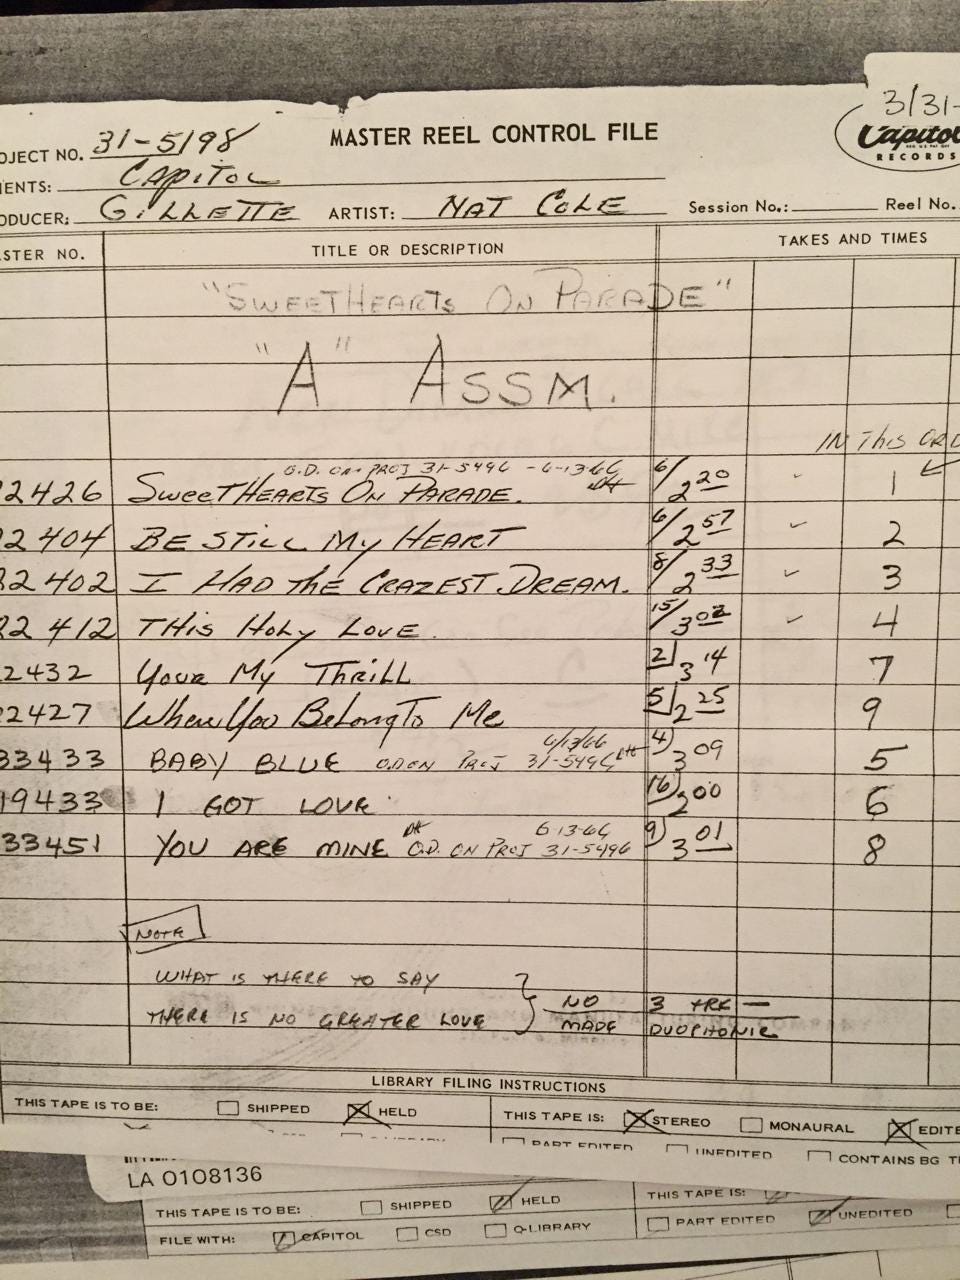 3/31-
OJECT NO. 31-5198 MASTER REEL CONTROL FILE Capitol
RECORDS
IENTS: CAPITOL
ODUCER: GILLETTE ARTIST: NAT COLE Session No.: Reel No.
STER NO. TITLE OR DESCRIPTION TAKES AND TIMES
"SWEETHEARTS ON PARADE"
"A" ASSM.
IN THIS ORD
O.D. ON PROJ 31-5496 - 6-13-66
2426 SWEETHEARTS ON PARADE. 6/ 2 20 1
2404 BE STILL MY HEART 6/ 2 57 2
2402 I HAD THE CRAZEST DREAM. 8/ 2 33 3
2412 THIS HOLY LOVE. 15/ 3 02 4
2432 YOUR MY THRILL 2/ 3 14 7
2427 WHEN YOU BELONG TO ME 5/ 2 25 9
6/13/66
33433 BABY BLUE O.D ON PROJ 31-5496 4) 3 09 5
19433 I GOT LOVE 16) 2 00 6
6-13-66
33451 YOU ARE MINE O.D. ON PROJ 31-5496 9) 3 01 8
NOTE
WHAT IS THERE TO SAY
THERE IS NO GREATER LOVE } NO 3 TRK —
MADE DUOPHONIC
LIBRARY FILING INSTRUCTIONS
THIS TAPE IS TO BE: SHIPPED HELD THIS TAPE IS: STEREO MONAURAL EDITE
PART EDITED UNEDITED CONTAINS BG T
LA 0108136
THIS TAPE IS TO BE: SHIPPED HELD THIS TAPE IS:
FILE WITH: CAPITOL CSD Q-LIBRARY PART EDITED UNEDITED